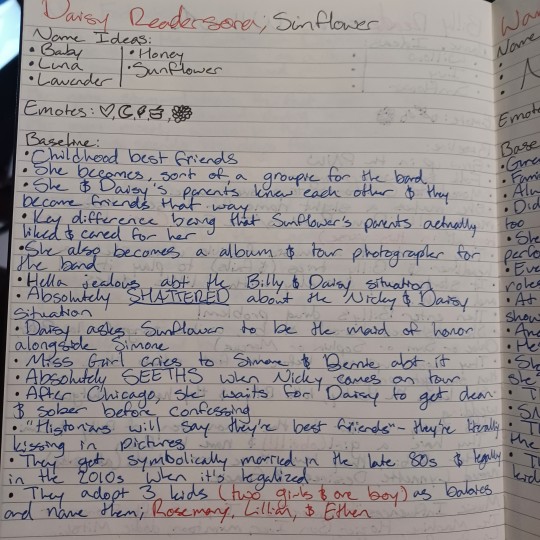 Daisy Readersona; Sunflower
Name Ideas:
• Baby | • Honey
• Luna | • Sunflower
• Lavender |
Emotes: ♡, ☾,
Baseline:
• Childhood best friends
• She becomes, sort of a groupie for the band
• She & Daisy's parents knew each other & they
become friends that way
• Key difference being that Sunflower's parents actually
liked & cared for her
• She also becomes a album & tour photographer for
the band
• Hella jealous abt the Billy & Daisy situation
• Absolutely SHATTERED about the Nicky & Daisy
situation
• Daisy asks Sunflower to be the maid of honor
alongside Simone
• Miss Girl cries to Simone & Bernie abt it
• Absolutely SEETHS when Nicky comes on tour
• After Chicago, she waits for Daisy to get clean
& sober before confessing
• "Historians will say they're best friends" - they're literally
kissing in pictures
• They get symbolically married in the late 80s & legally
in the 2010s when it's legalized
• They adopt 3 kids (two girls & one boy) as babies
and name them; Rosemary, Lillian, & Ethen
Name
Emote
Base
too
• She
• Eve
roles
• At
show
• And
• He
• She
she
• T
the
• T